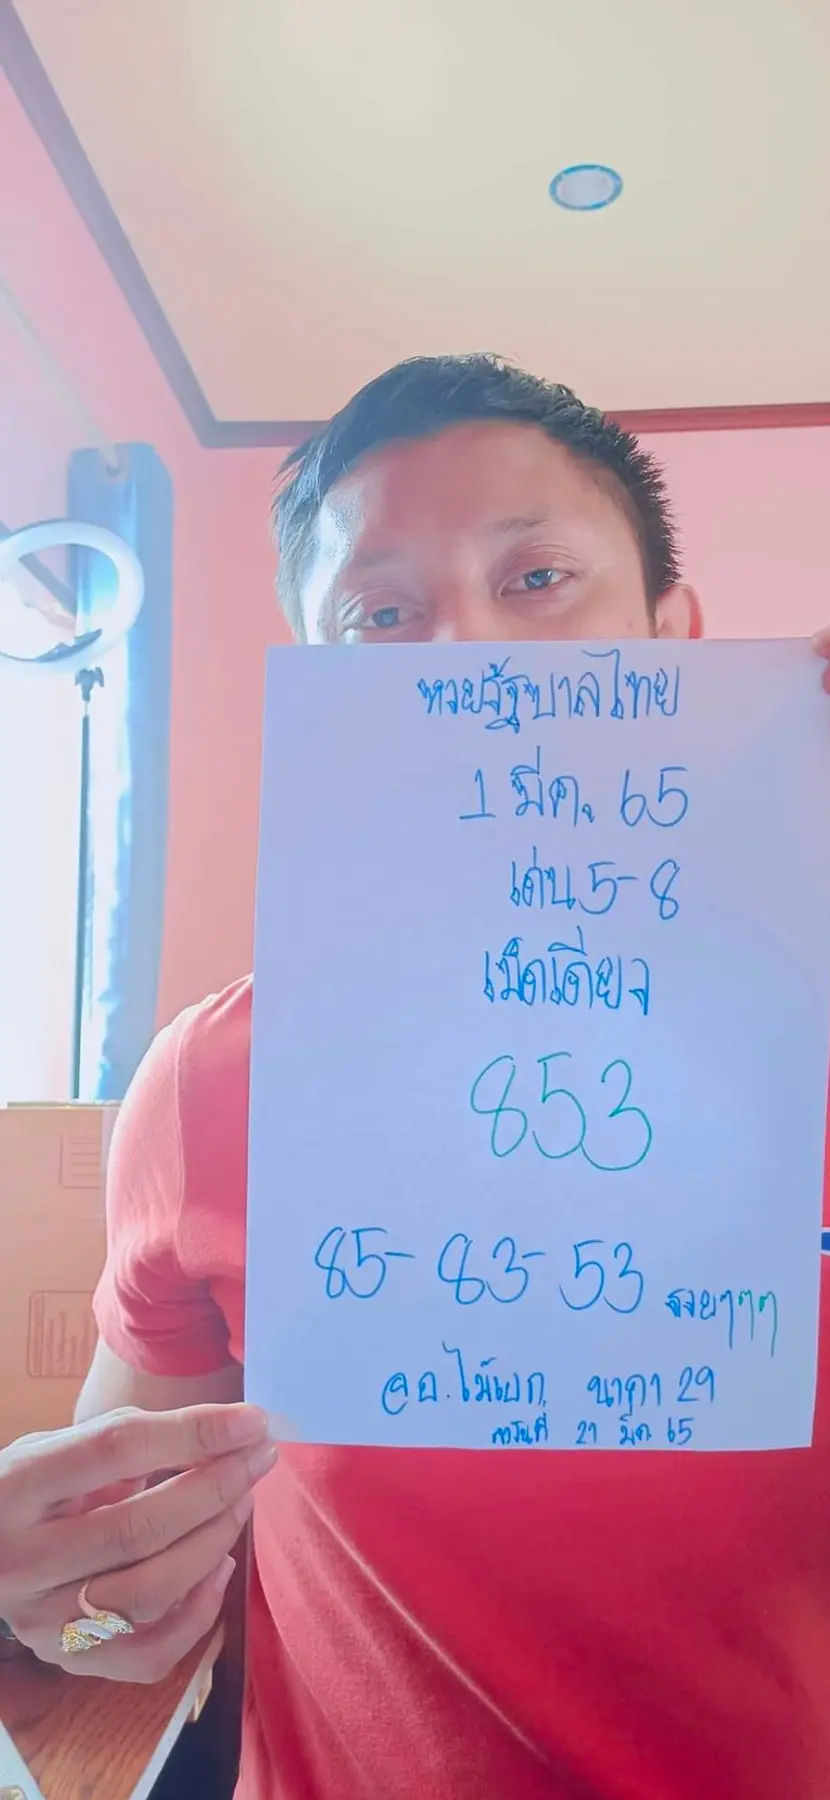 หวยรัฐบาลไทย
1 มีค. 65
เด่น 5-8
เม็ดเดียว
853
85-83-53 รวยๆๆๆ
@อ.ไม้เอก นาคา 29
21 มีค. 65